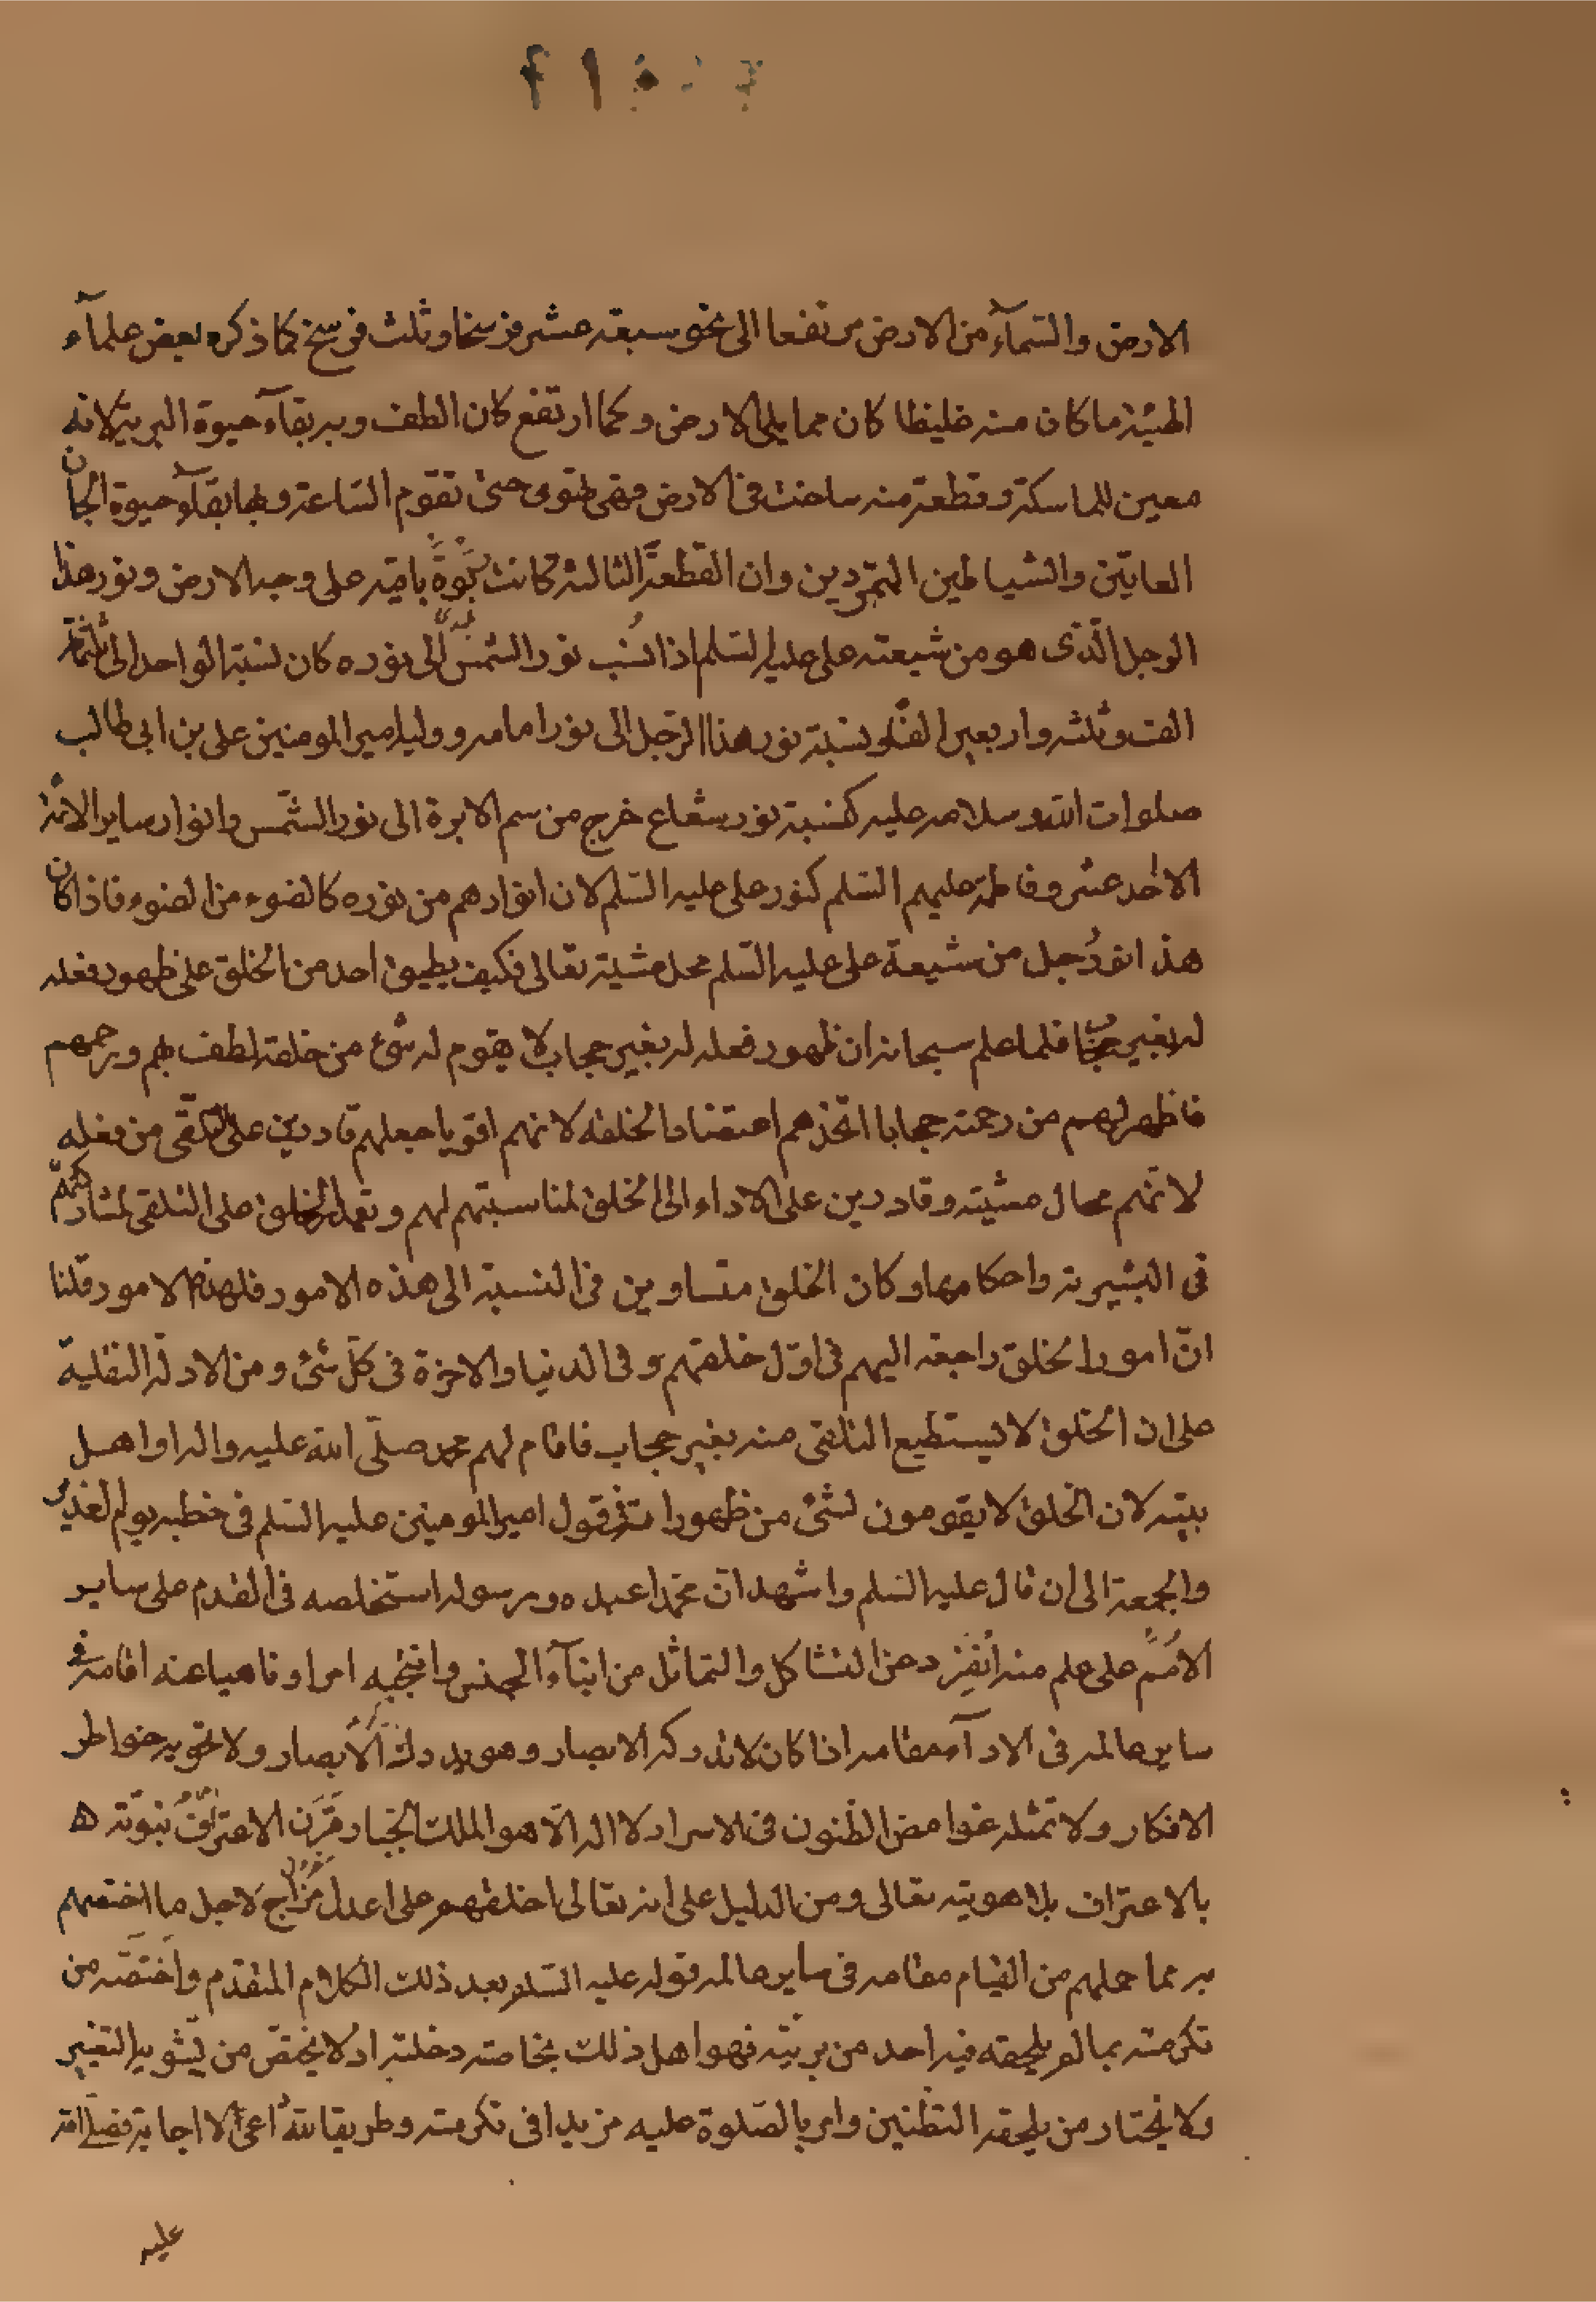 الارض والسّمآء من الارض مرتفعا الى نحو سبعة عشر فرسخا وثلث فرسخ كما ذكره بعض علمآء
الهيئة ما كان منه غليظا كان مما يلى الارض وكما ارتفع كان الطف وبه بقآء حيوة البرية لانه
معين للماسكة وقطعة منه ساخت فى الارض فهى تهوى حتى تقوم الساعة وبها بقآء حيوة الجان
العاتين والشياطين المتمردين وان القطعة الثالثة كانت باقية على وجه الارض ونور هذا
الرجل الّذى هو من شيعته على عليه السلم اذا نُسب نور الشمس الى نوره كان نسبة الواحد الى
الف وثلثة واربعين الفا ونسبة نور هذا الرّجل الى نور امامه ووليه امير المومنين على بن ابى طالب
صلوات الله وسلامه عليه كنسبة نور شعاع خرج من سم الابرة الى نور الشّمس وانوار ساير الائمة
الاحد عشر وفاطمة عليهم السّلم كنور على عليه السّلم لان انوارهم من نوره كالضوء من الضوء فاذا كان
هذا نور رُجل من شيعة على عليه السّلم محل مشيّة تعالى فكيف يطيق احد من الخلق على ظهور فعله
له بغير حجاب فلما علم سبحانه ان ظهور فعله له بغير حجاب لا يقوم له شىء من خلقه لطف بهم ورحمهم
فاظهر لهم من رحمته حجابا اتّخذهم اعضادا لخلقه لانهم اقويا جعلهم قادرين على التلقّى من فعله
لانّهم محال مشيّته وقادرين على الاداء الى الخلق لمناسبتهم لهم وتعهد الخلق على التلقى لمشاركتهم
فى البشيرية واحكامها وكان الخلق متساوين فى النسبة الى هذه الامور فلهذه الامور قلنا
انّ امور الخلق راجعة اليهم فى اوّل خلقتهم وفى الدنيا والاخرة فى كلّ شىء ومن الادلة النقلية
على ان الخلق لا يستطيع التلقى منه بغير حجاب فاقام لهم محمد صلّى الله عليه واله واهل
بيته لان الخلق لا يقومون لشىء من ظهور قول امير المومنين عليه السلم فى خطبه يوم الغدير
والجمعة الى ان قال عليه السلم واشهد انّ محمّدا عبده ورسوله استخلصه فى القدم على ساير
الامُم على علم منه انفرد عن التشاكل والتماثل من ابنآء الجنس وانتجبه امرا وناهيا عنه اقامه فى
ساير عالمه فى الادآء مقامه اذا كان لا تدركه الابصار وهو يدرك الابصار ولا تحويه خواطر
الافكار ولا تمثله غوامض الظّنون فى الاسرار لا اله الّا هو الملك الجبار قَرَن الاعتراف بنبوّته ه
بالاعتراف بلاهويته تعالى ومن الدليل على انه تعالى خلقهم على اعدل مزاج لاجل ما اختصهم
به مما حملهم من القيام مقامه فى ساير عالمه قوله عليه السّلم بعد ذلك الكلام المتقدم واختصّه من
تكرمته بما لم يلحقه فيه احد من بريّته فهو اهل ذلك بخاصته وخلته اذ لا يختصّ من يّشوبه التغيير
ولا يختار من يلحقه التظنين وامر بالصّلوة عليه مزيدا فى تكرمته وطريقا للداعى الى اجابته فصلى الله
عليه